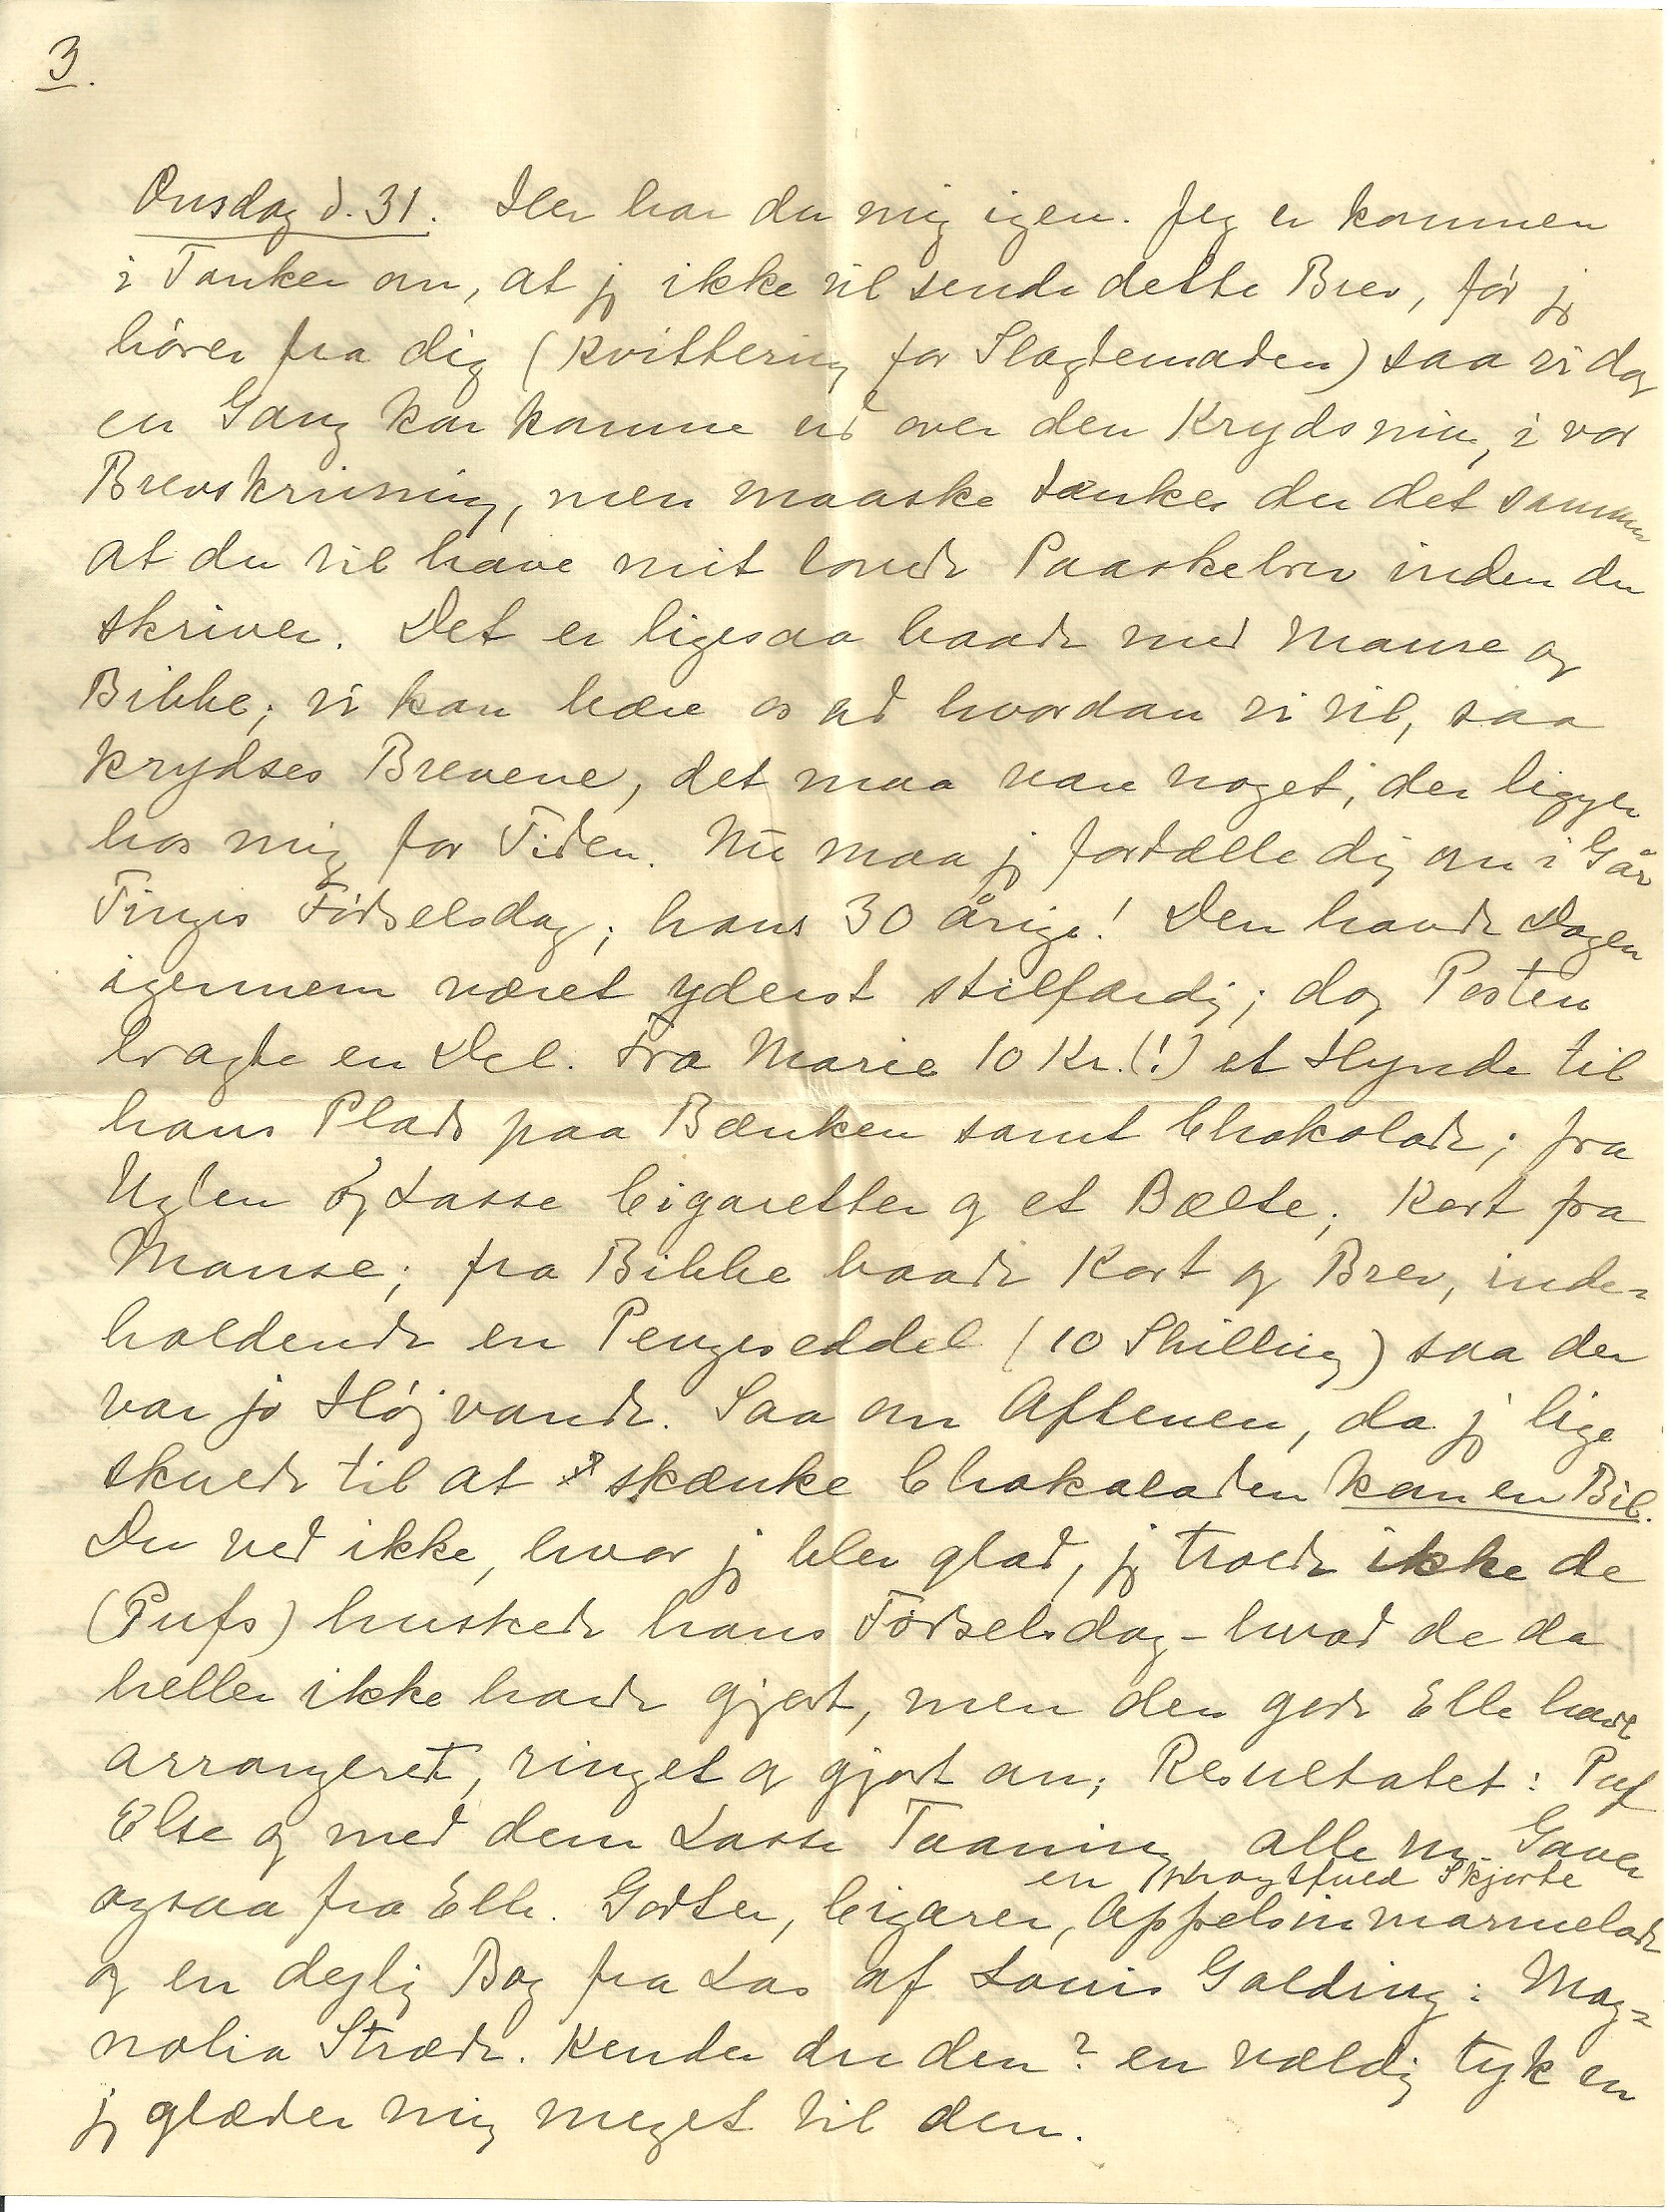 3.
Onsdag d. 31. Her har du mig igen. Jeg er kommen
i Tanker om, at jg ikke vil sende dette Brev, før jg
hører fra dig (Kvittering for Slagtemaden) saa vi dog
en Gang kan komme ud over den Krydsning i vor
Brevskrivning, men maaske tænker du det samme
at du vil have mit lovede Paaskebrev inden du
skriver. Det er ligesaa baade med Manse og
Bibbe; vi kan bære os ad hvordan vi vil, saa
krydses Brevene, det maa være noget, der ligger
hos mig for Tiden. Nu maa jg fortælle dig om i Går
Tinges Fødselsdag; hans 30 årige! Den havde Dagen
igennem været yderst stilfærdig; dog Posten
bragte en Del. Fra Marie 10 Kr. (!) et Hynde til
hans Plads paa Bænken samt Chokolade; fra
Uglen og Lasse Cigaretter og et Bælte; Kort fra
Manse; fra Bibbe baade Kort og Brev, inde=
holdende en Pengeseddel (10 Shilling) saa der
var jo Højvande. Saa om Aftenen, da jg lige
skulde til at skænke Chokoladen kom en Bil.
Du ved ikke, hvor jg blev glad, jg troede ikke de
(Pufs) huskede hans Fødselsdag – hvad de da
heller ikke havde gjort, men den gode Elle havde
arrangeret, ringet og gjort an; Resultatet: Puf
Else og med dem Lasse Taaning alle m. Gaver
en pragtfuld Skjorte
ogsaa fra Elle. Godter, Cigarer, Appelsinmarmelade
og en dejlig Bog fra Las af Louis Golding: Mag=
nolia Stræde. Kender du den? en vældig tyk en
jg glæder mig meget til den.